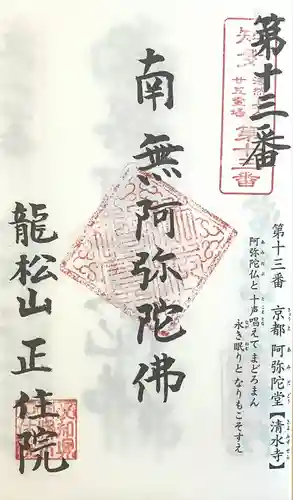 第十三番
知多
法然上人
廿五霊場
第十三番
第十三番 京都 阿弥陀堂【清水寺】
阿弥陀仏と 十声唱えて まどろまん
永き眠りと なりもこそすえ
南無阿弥陀佛
龍松山 正住院